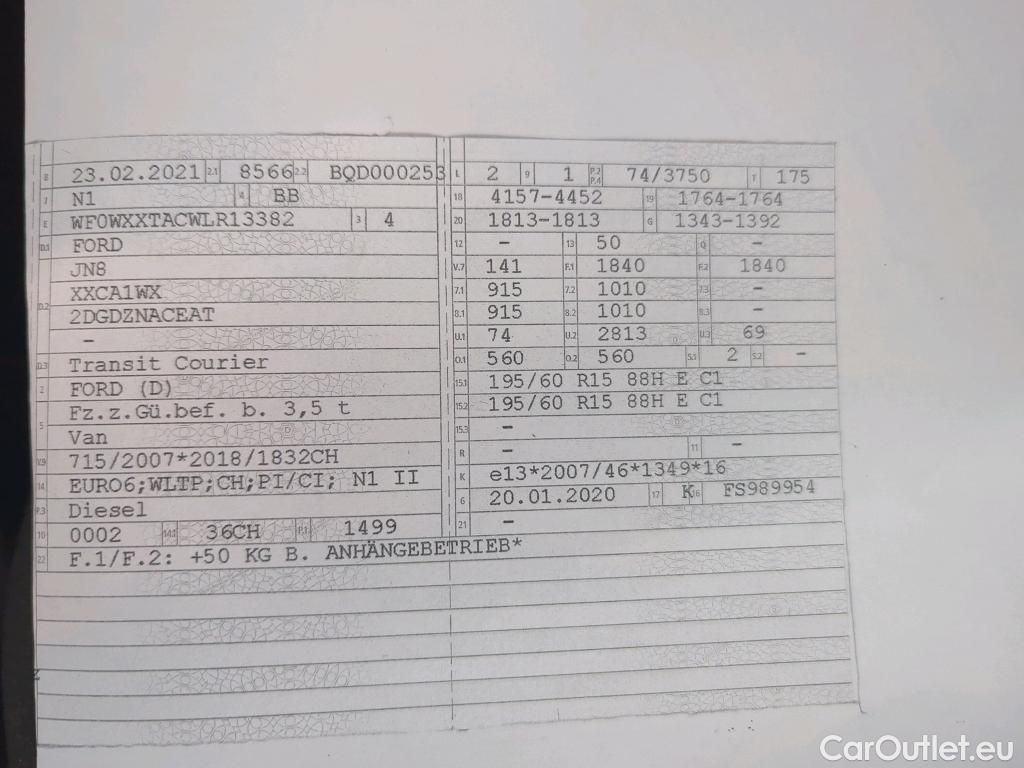 B 23.02.2021 2.1 8566 2.2 BQD000253
J N1 4 BB
E WF0WXXTACWLR13382 3 4
D.1 FORD
JN8
XXCA1WX
D.2 2DGDZNACEAT
–
D.3 Transit Courier
2 FORD (D)
5 Fz.z.Gü.bef. b. 3,5 t
Van
V.9 715/2007*2018/1832CH
14 EURO6;WLTP;CH;PI/CI; N1 II
P.3 Diesel
10 0002 14.1 36CH P.1 1499
22 F.1/F.2: +50 KG B. ANHÄNGEBETRIEB*
L 2 9 1 P.2 P.4 74/3750 T 175
18 4157-4452 19 1764-1764
20 1813-1813 G 1343-1392
12 – 13 50 Q –
V.7 141 F.1 1840 F.2 1840
7.1 915 7.2 1010 7.3 –
8.1 915 8.2 1010 8.3 –
U.1 74 U.2 2813 U.3 69
O.1 560 O.2 560 S.1 2 S.2 –
15.1 195/60 R15 88H E C1
15.2 195/60 R15 88H E C1
15.3 –
R – 11 –
K e13*2007/46*1349*16
6 20.01.2020 17 K 16 FS989954
21 –
CarOutlet.eu